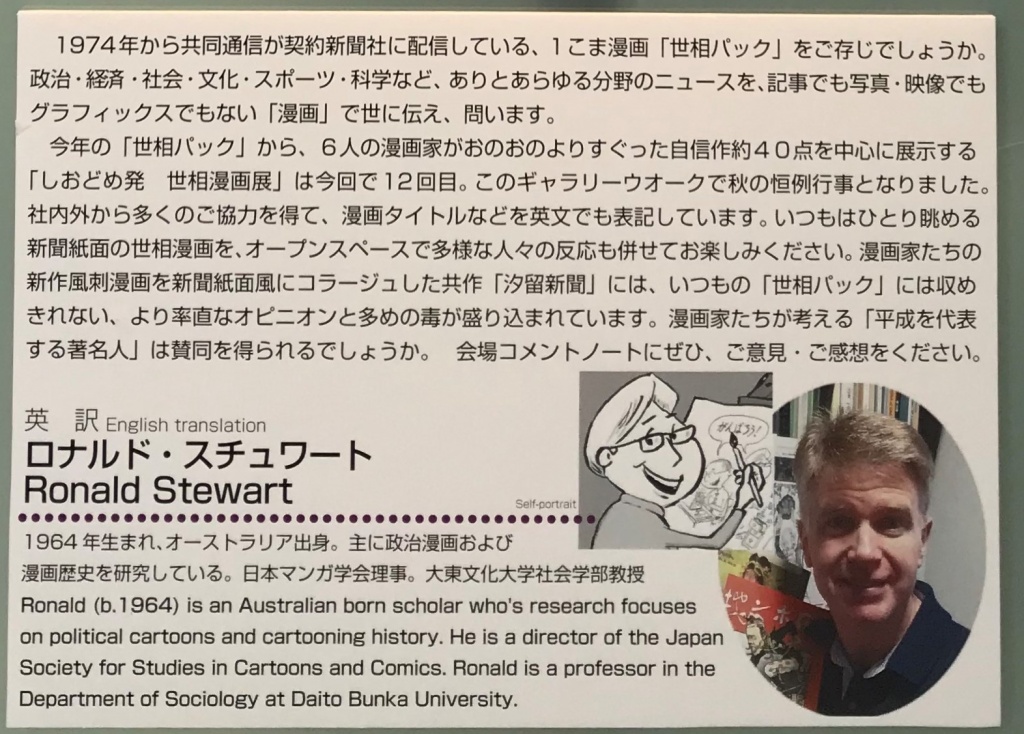 1974年から共同通信が契約新聞社に配信している、1こま漫画「世相パック」をご存じでしょうか。
政治・経済・社会・文化・スポーツ・科学など、ありとあらゆる分野のニュースを、記事でも写真・映像でも
グラフィックスでもない「漫画」で世に伝え、問います。
今年の「世相パック」から、6人の漫画家がおのおのよりすぐった自信作約40点を中心に展示する
「しおどめ発　世相漫画展」は今回で12回目。このギャラリーウオークで秋の恒例行事となりました。
社内外から多くのご協力を得て、漫画タイトルなどを英文でも表記しています。いつもはひとり眺める
新聞紙面の世相漫画を、オープンスペースで多様な人々の反応も併せてお楽しみください。漫画家たちの
新作風刺漫画を新聞紙面風にコラージュした共作「汐留新聞」には、いつもの「世相パック」には収め
きれない、より率直なオピニオンと多めの毒が盛り込まれています。漫画家たちが考える「平成を代表
する著名人」は賛同を得られるでしょうか。　会場コメントノートにぜひ、ご意見・ご感想をください。
英　訳 English translation
ロナルド・スチュワート
Ronald Stewart
Self-portrait
がんばろう!
1964年生まれ、オーストラリア出身。主に政治漫画および
漫画歴史を研究している。日本マンガ学会理事。大東文化大学社会学部教授
Ronald (b.1964) is an Australian born scholar who's research focuses
on political cartoons and cartooning history. He is a director of the Japan
Society for Studies in Cartoons and Comics. Ronald is a professor in the
Department of Sociology at Daito Bunka University.